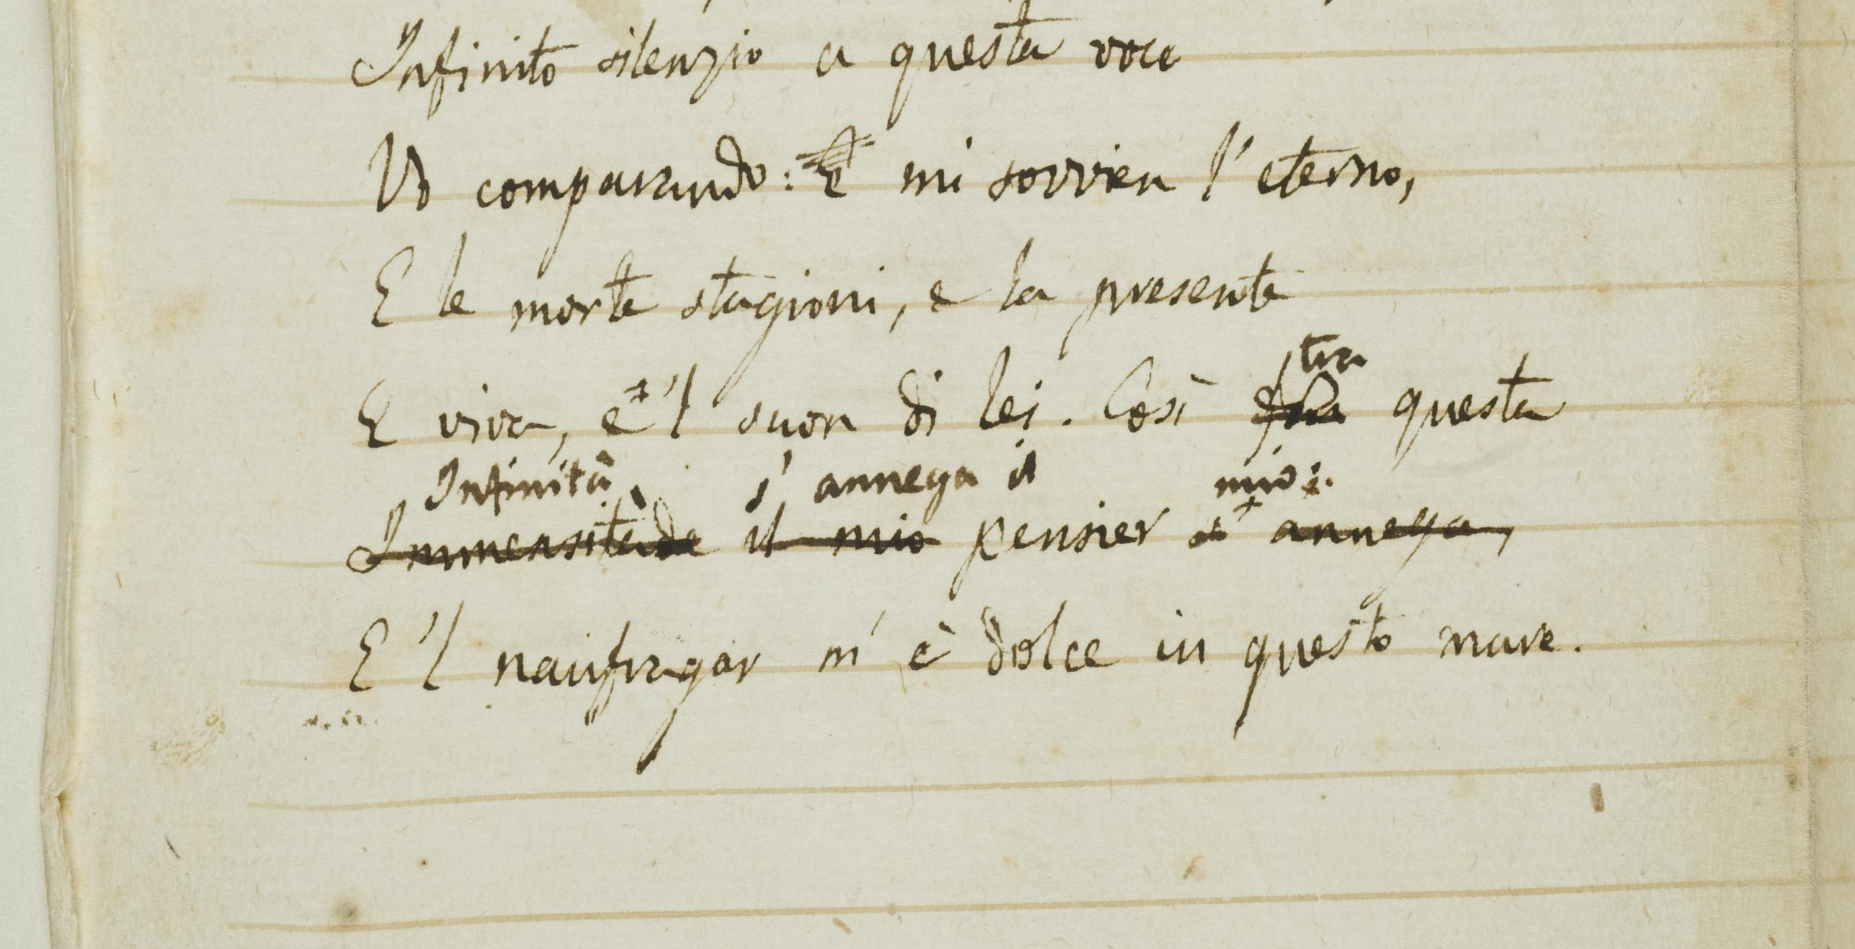 Infinito silenzio a questa voce
Vo comparando: e mi sovvien l'eterno,
E le morte stagioni, e la presente
tra
E viva, e 'l suon di lei. Così fra questa
Infinità s'annega il mio:
Immensitade il mio pensier s'annega,
E 'l naufragar m'è dolce in questo mare.